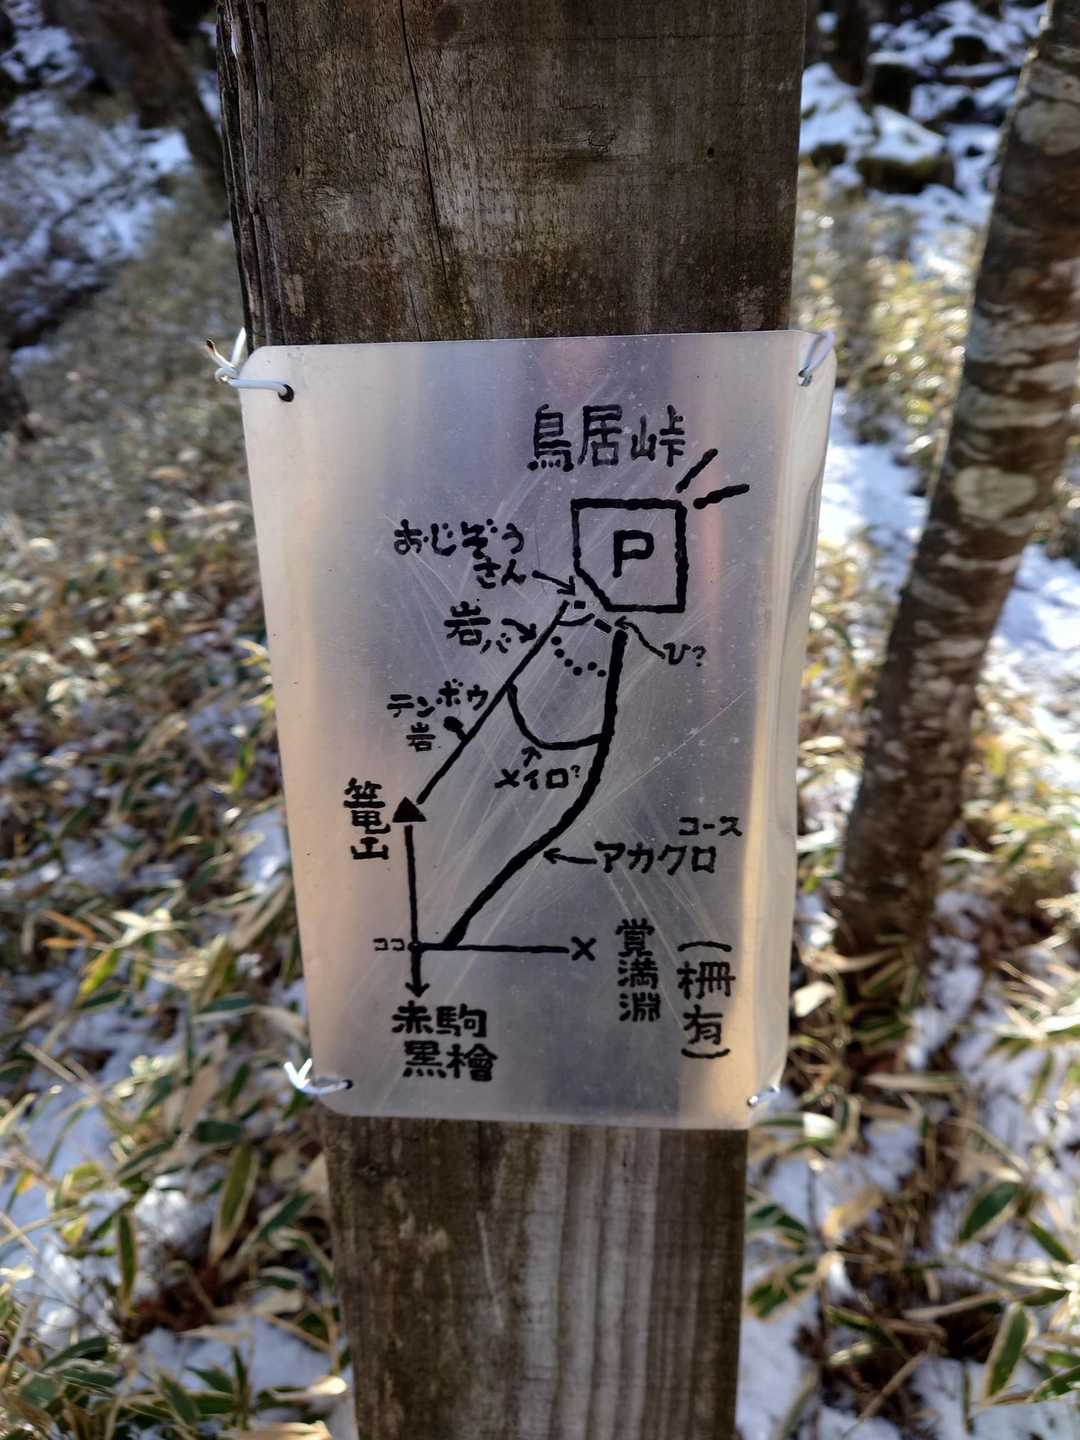 鳥居峠
P
おじぞう
さん
岩バ
ひ?
テンボウ
岩
メイロ?
篭山
コース
アカクロ
ココ
×
覚満淵
(柵有)
赤駒
黒檜